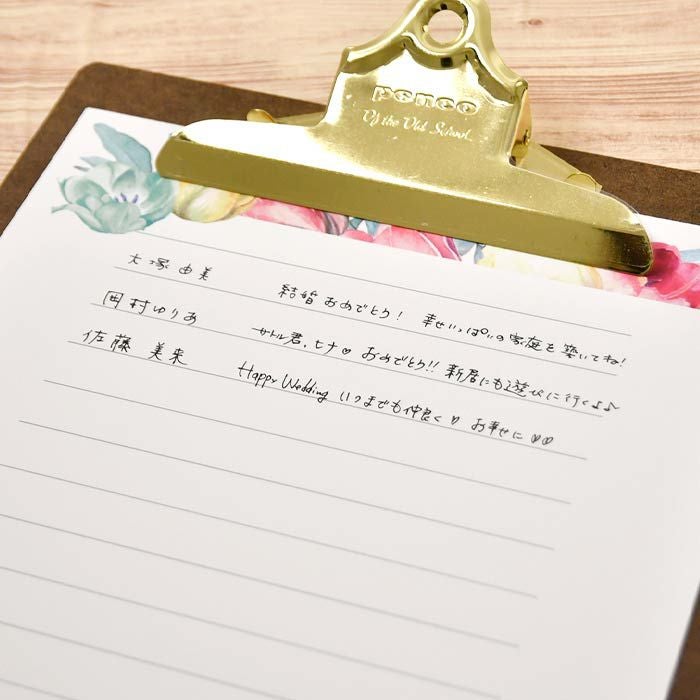 penco
Of the Old School.
大塚由美 結婚おめでとう！ 幸せいっぱいの家庭を築いてね！
田村ゆりあ サトル君、ヒナ♡ おめでとう!! 新居にも遊びに行く♪♪
佐藤 美来 Happy Wedding いつまでも仲良く♡ お幸せに♡♡